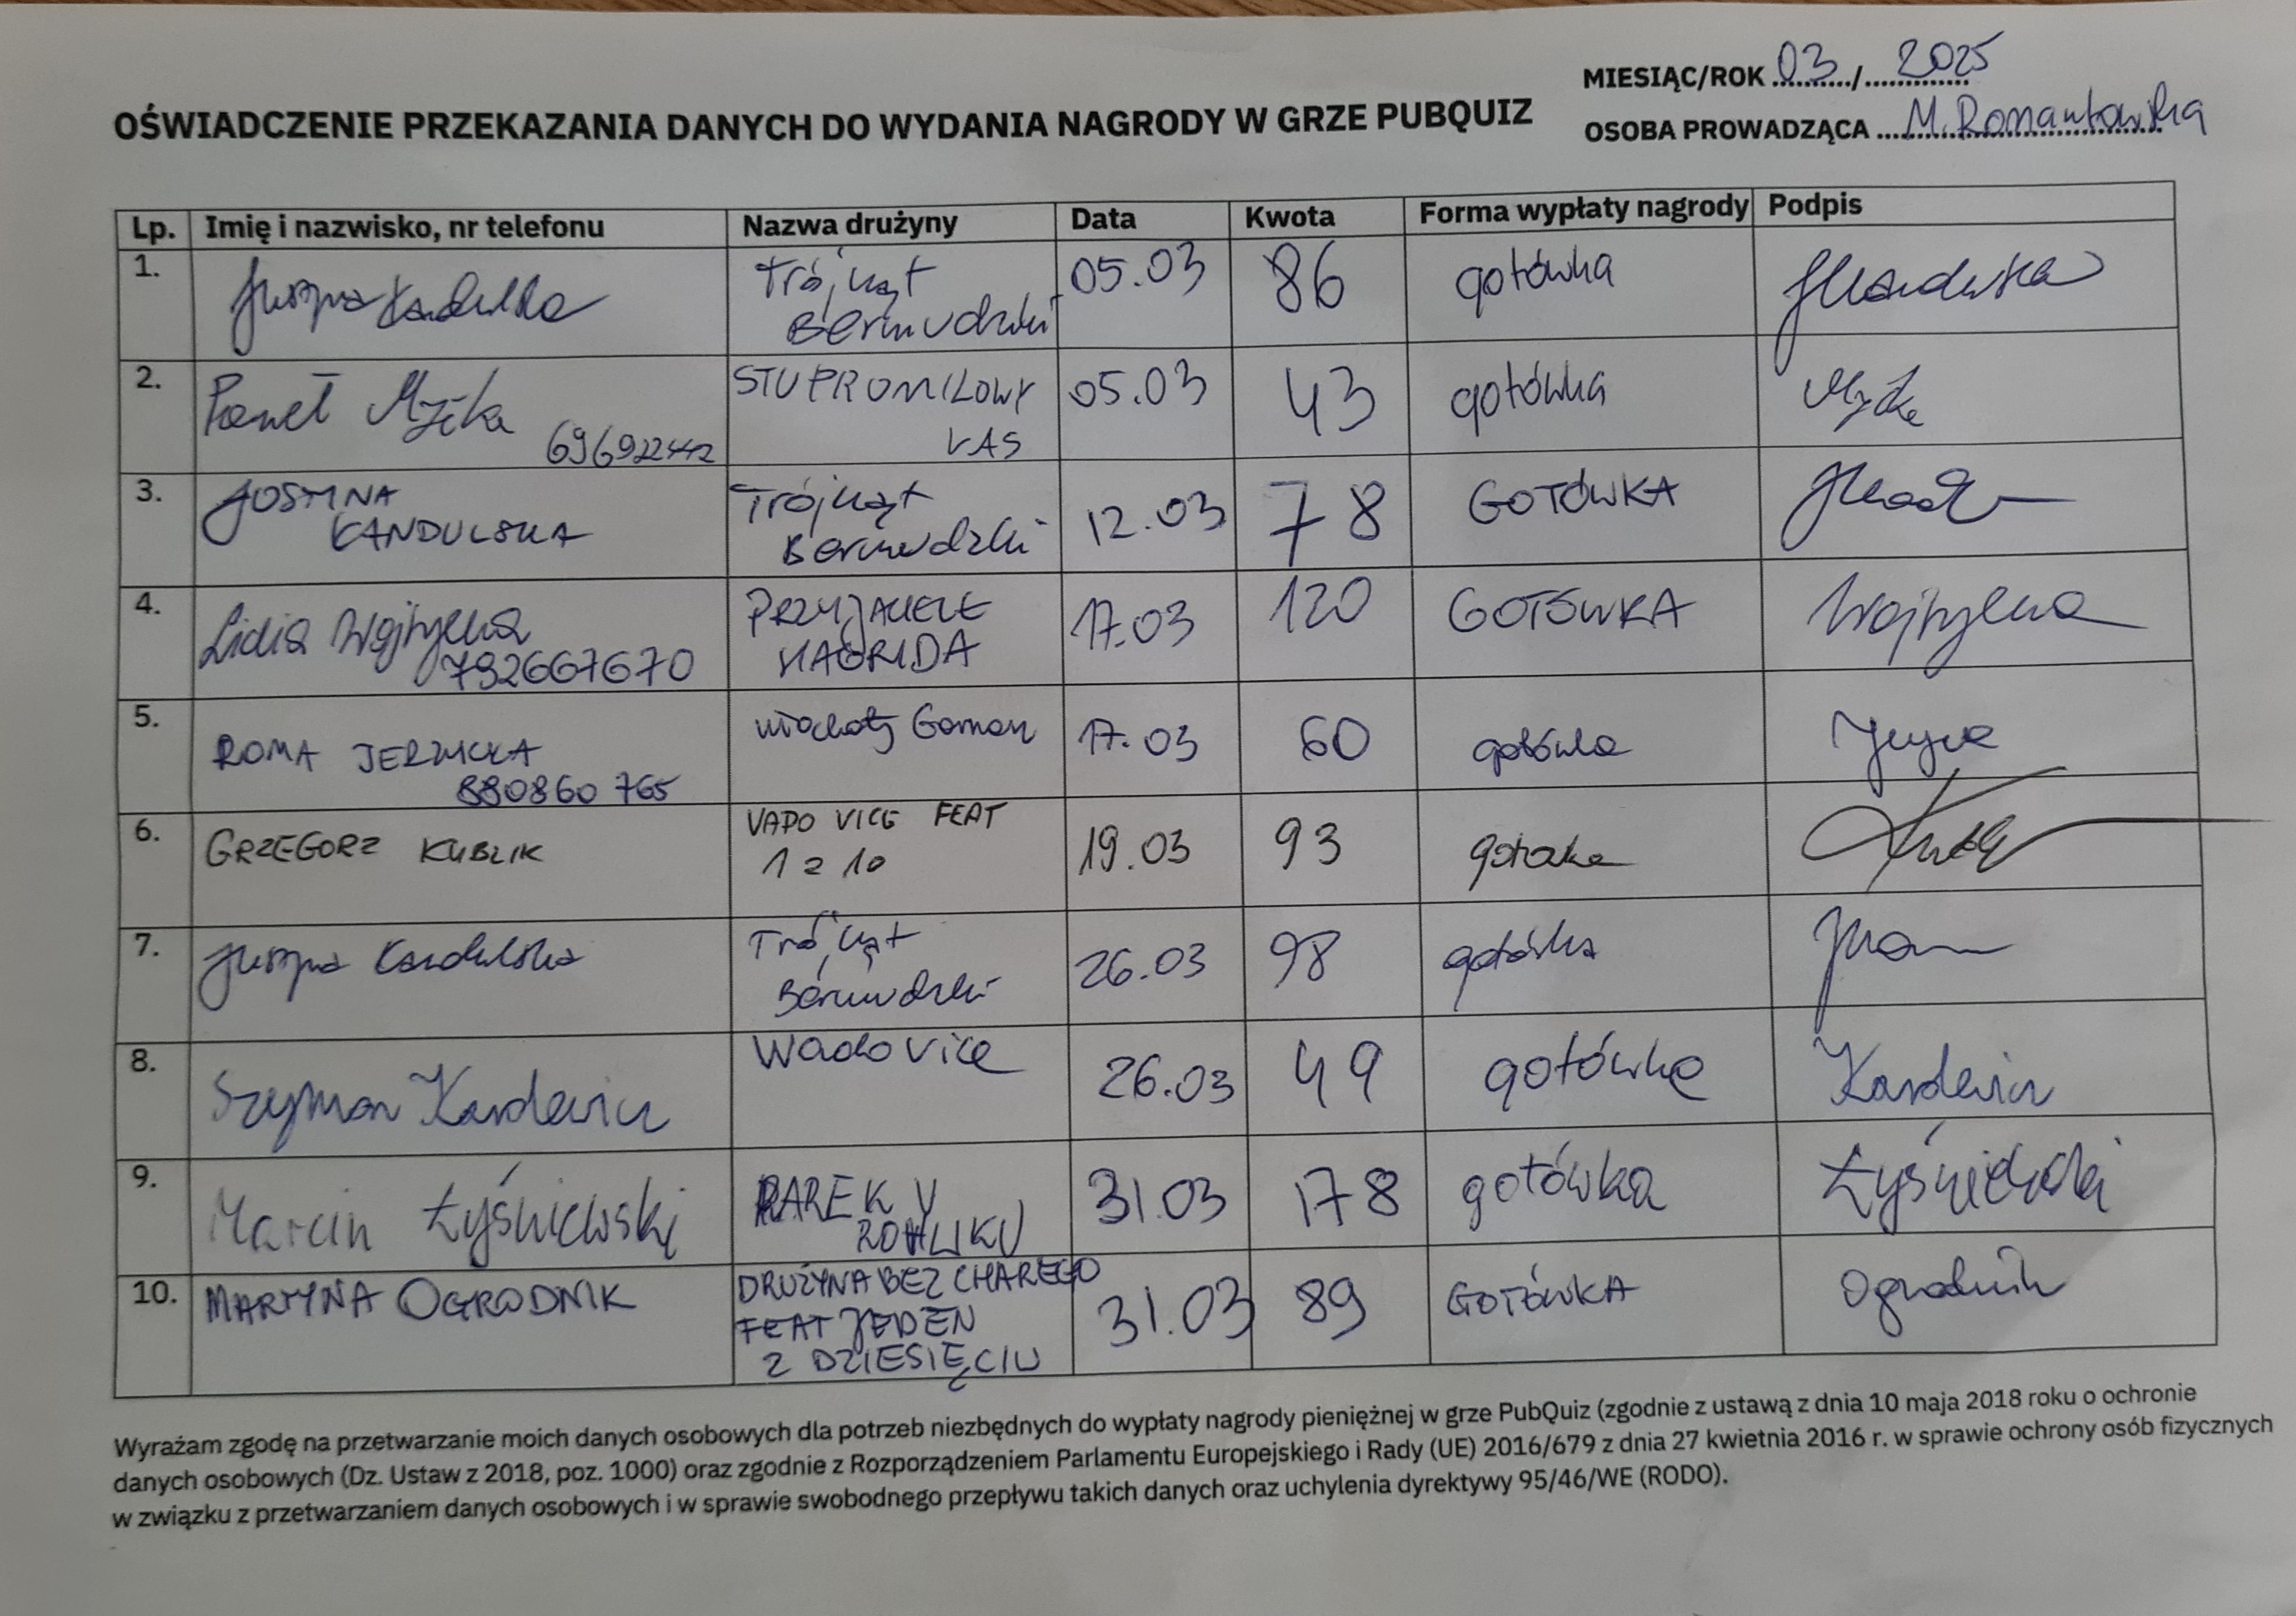 MIESIĄC/ROK 03/2025
OŚWIADCZENIE PRZEKAZANIA DANYCH DO WYDANIA NAGRODY W GRZE PUBQUIZ
OSOBA PROWADZĄCA M. Romantowska
Lp. Imię i nazwisko, nr telefonu Nazwa drużyny Data Kwota Forma wypłaty nagrody Podpis
1. Justyna Kandulska Trójkąt 05.03 86 gotówka
Bermudzki
2. Paweł STUPROMILOWY 05.03 43 gotówka
696922442 KAS
3. JUSTYNA Trójkąt 12.03 78 GOTÓWKA
KANDULSKA Bermudzki
4. Lidia PRZYJACIELE 17.03 120 GOTÓWKA
792667670 HAGRIDA
5. ROMA JERZYCKA 17.03 60 gotówka
880860 765
6. GRZEGORZ KUBLIK VADO VICE FEAT 19.03 93 gotówka
1 z 10
7. Justyna Kandulska Trójkąt 26.03 98 gotówka
Bermudzki
8. Szymon Kardewicz Wado Vice 26.03 49 gotówka
9. Marcin Łyśniewski PAREK V 31.03 178 gotówka Łyśniewski
ROHLIKU
10. MARTYNA OGRODNIK DRUŻYNA BEZ CHAREGO 31.03 89 GOTÓWKA Ogrodnik
FEAT JEDEN
Z DZIESIĘCIU
Wyrażam zgodę na przetwarzanie moich danych osobowych dla potrzeb niezbędnych do wypłaty nagrody pieniężnej w grze PubQuiz (zgodnie z ustawą z dnia 10 maja 2018 roku o ochronie
danych osobowych (Dz. Ustaw z 2018, poz. 1000) oraz zgodnie z Rozporządzeniem Parlamentu Europejskiego i Rady (UE) 2016/679 z dnia 27 kwietnia 2016 r. w sprawie ochrony osób fizycznych
w związku z przetwarzaniem danych osobowych i w sprawie swobodnego przepływu takich danych oraz uchylenia dyrektywy 95/46/WE (RODO).